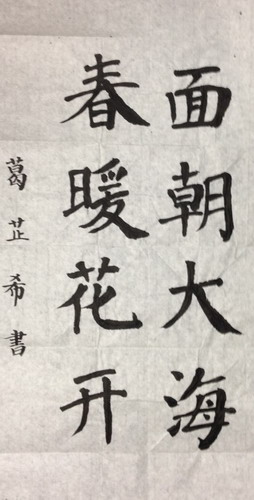 面朝大海
春暖花开
葛芷希書